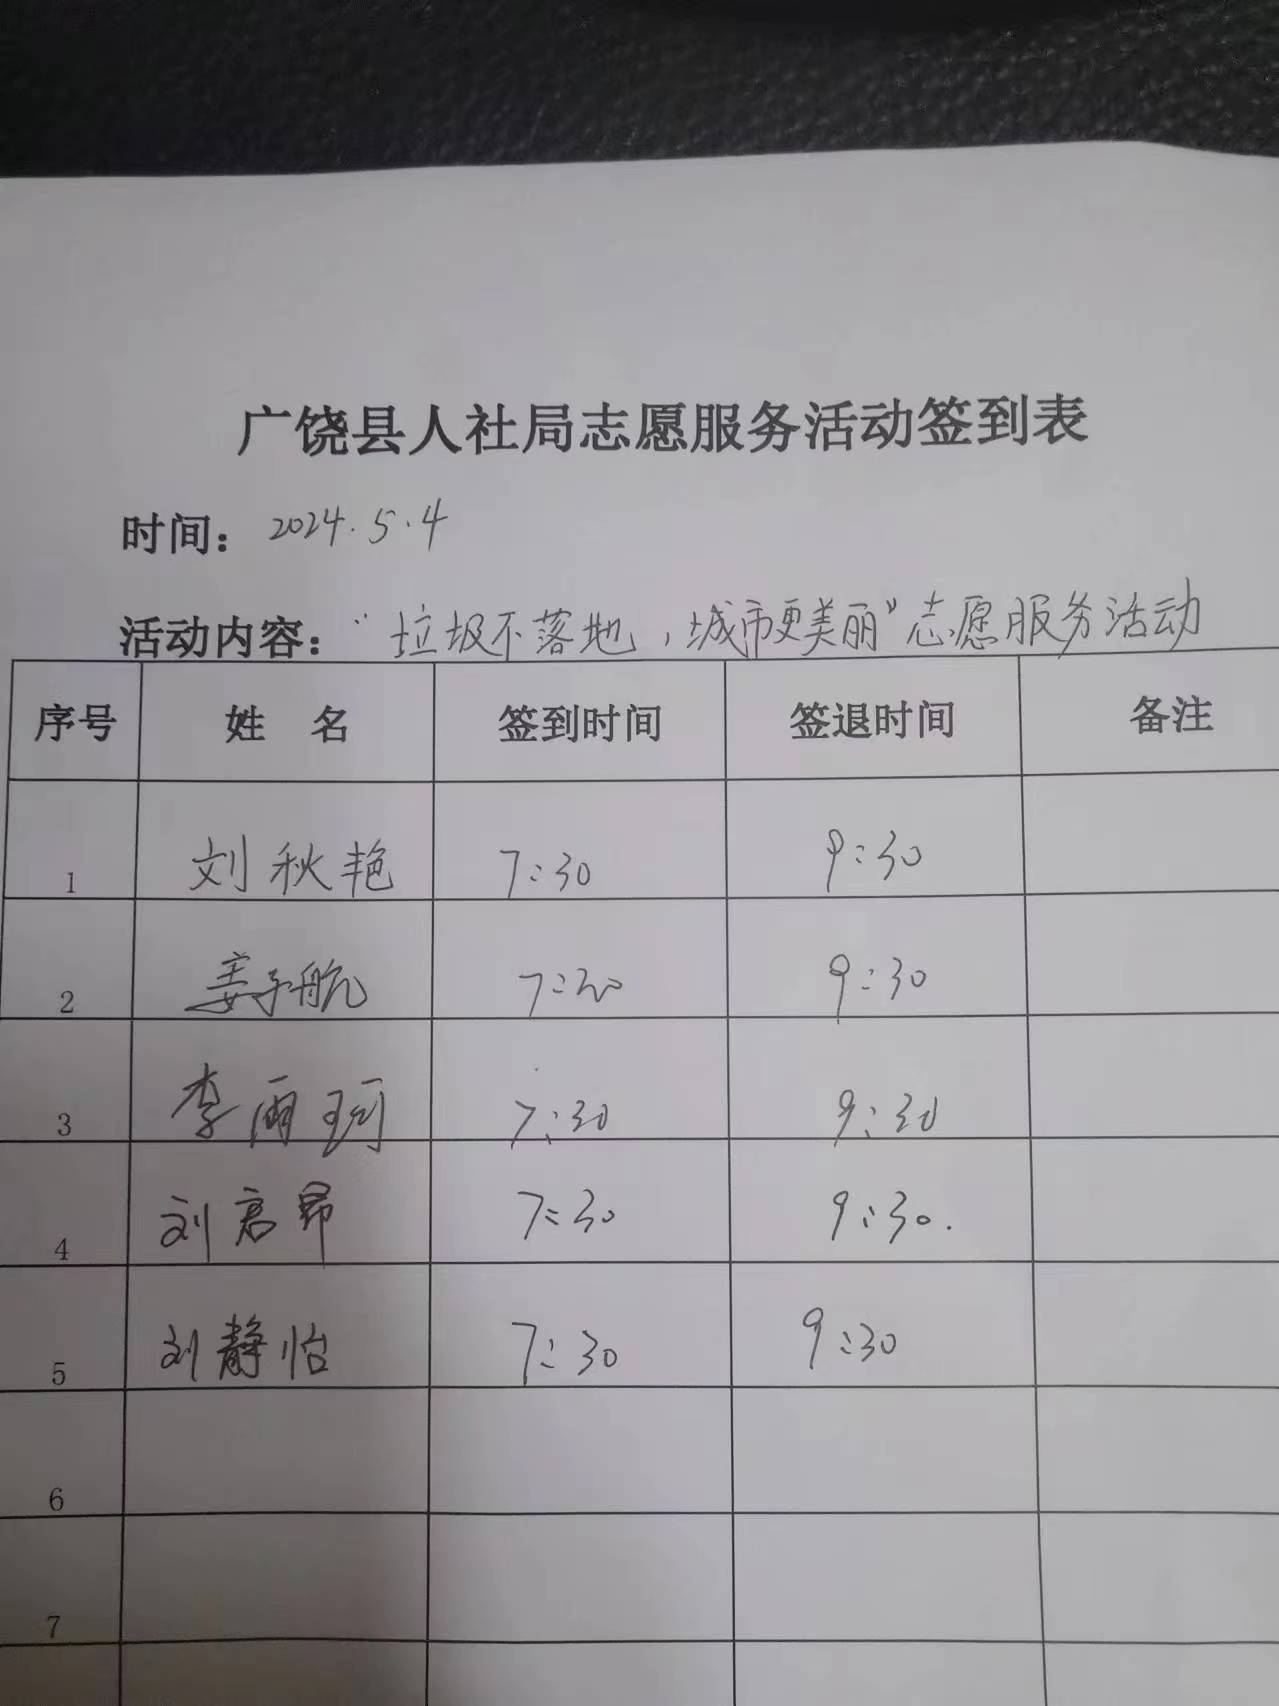 广饶县人社局志愿服务活动签到表
时间：2024.5.4
活动内容：“垃圾不落地，城市更美丽”志愿服务活动
序号 姓 名 签到时间 签退时间 备注
1 刘秋艳 7:30 9:30
2 姜子航 7:30 9:30
3 李雨珂 7:30 9:30
4 刘君昂 7:30 9:30.
5 刘静怡 7:30 9:30
6
7